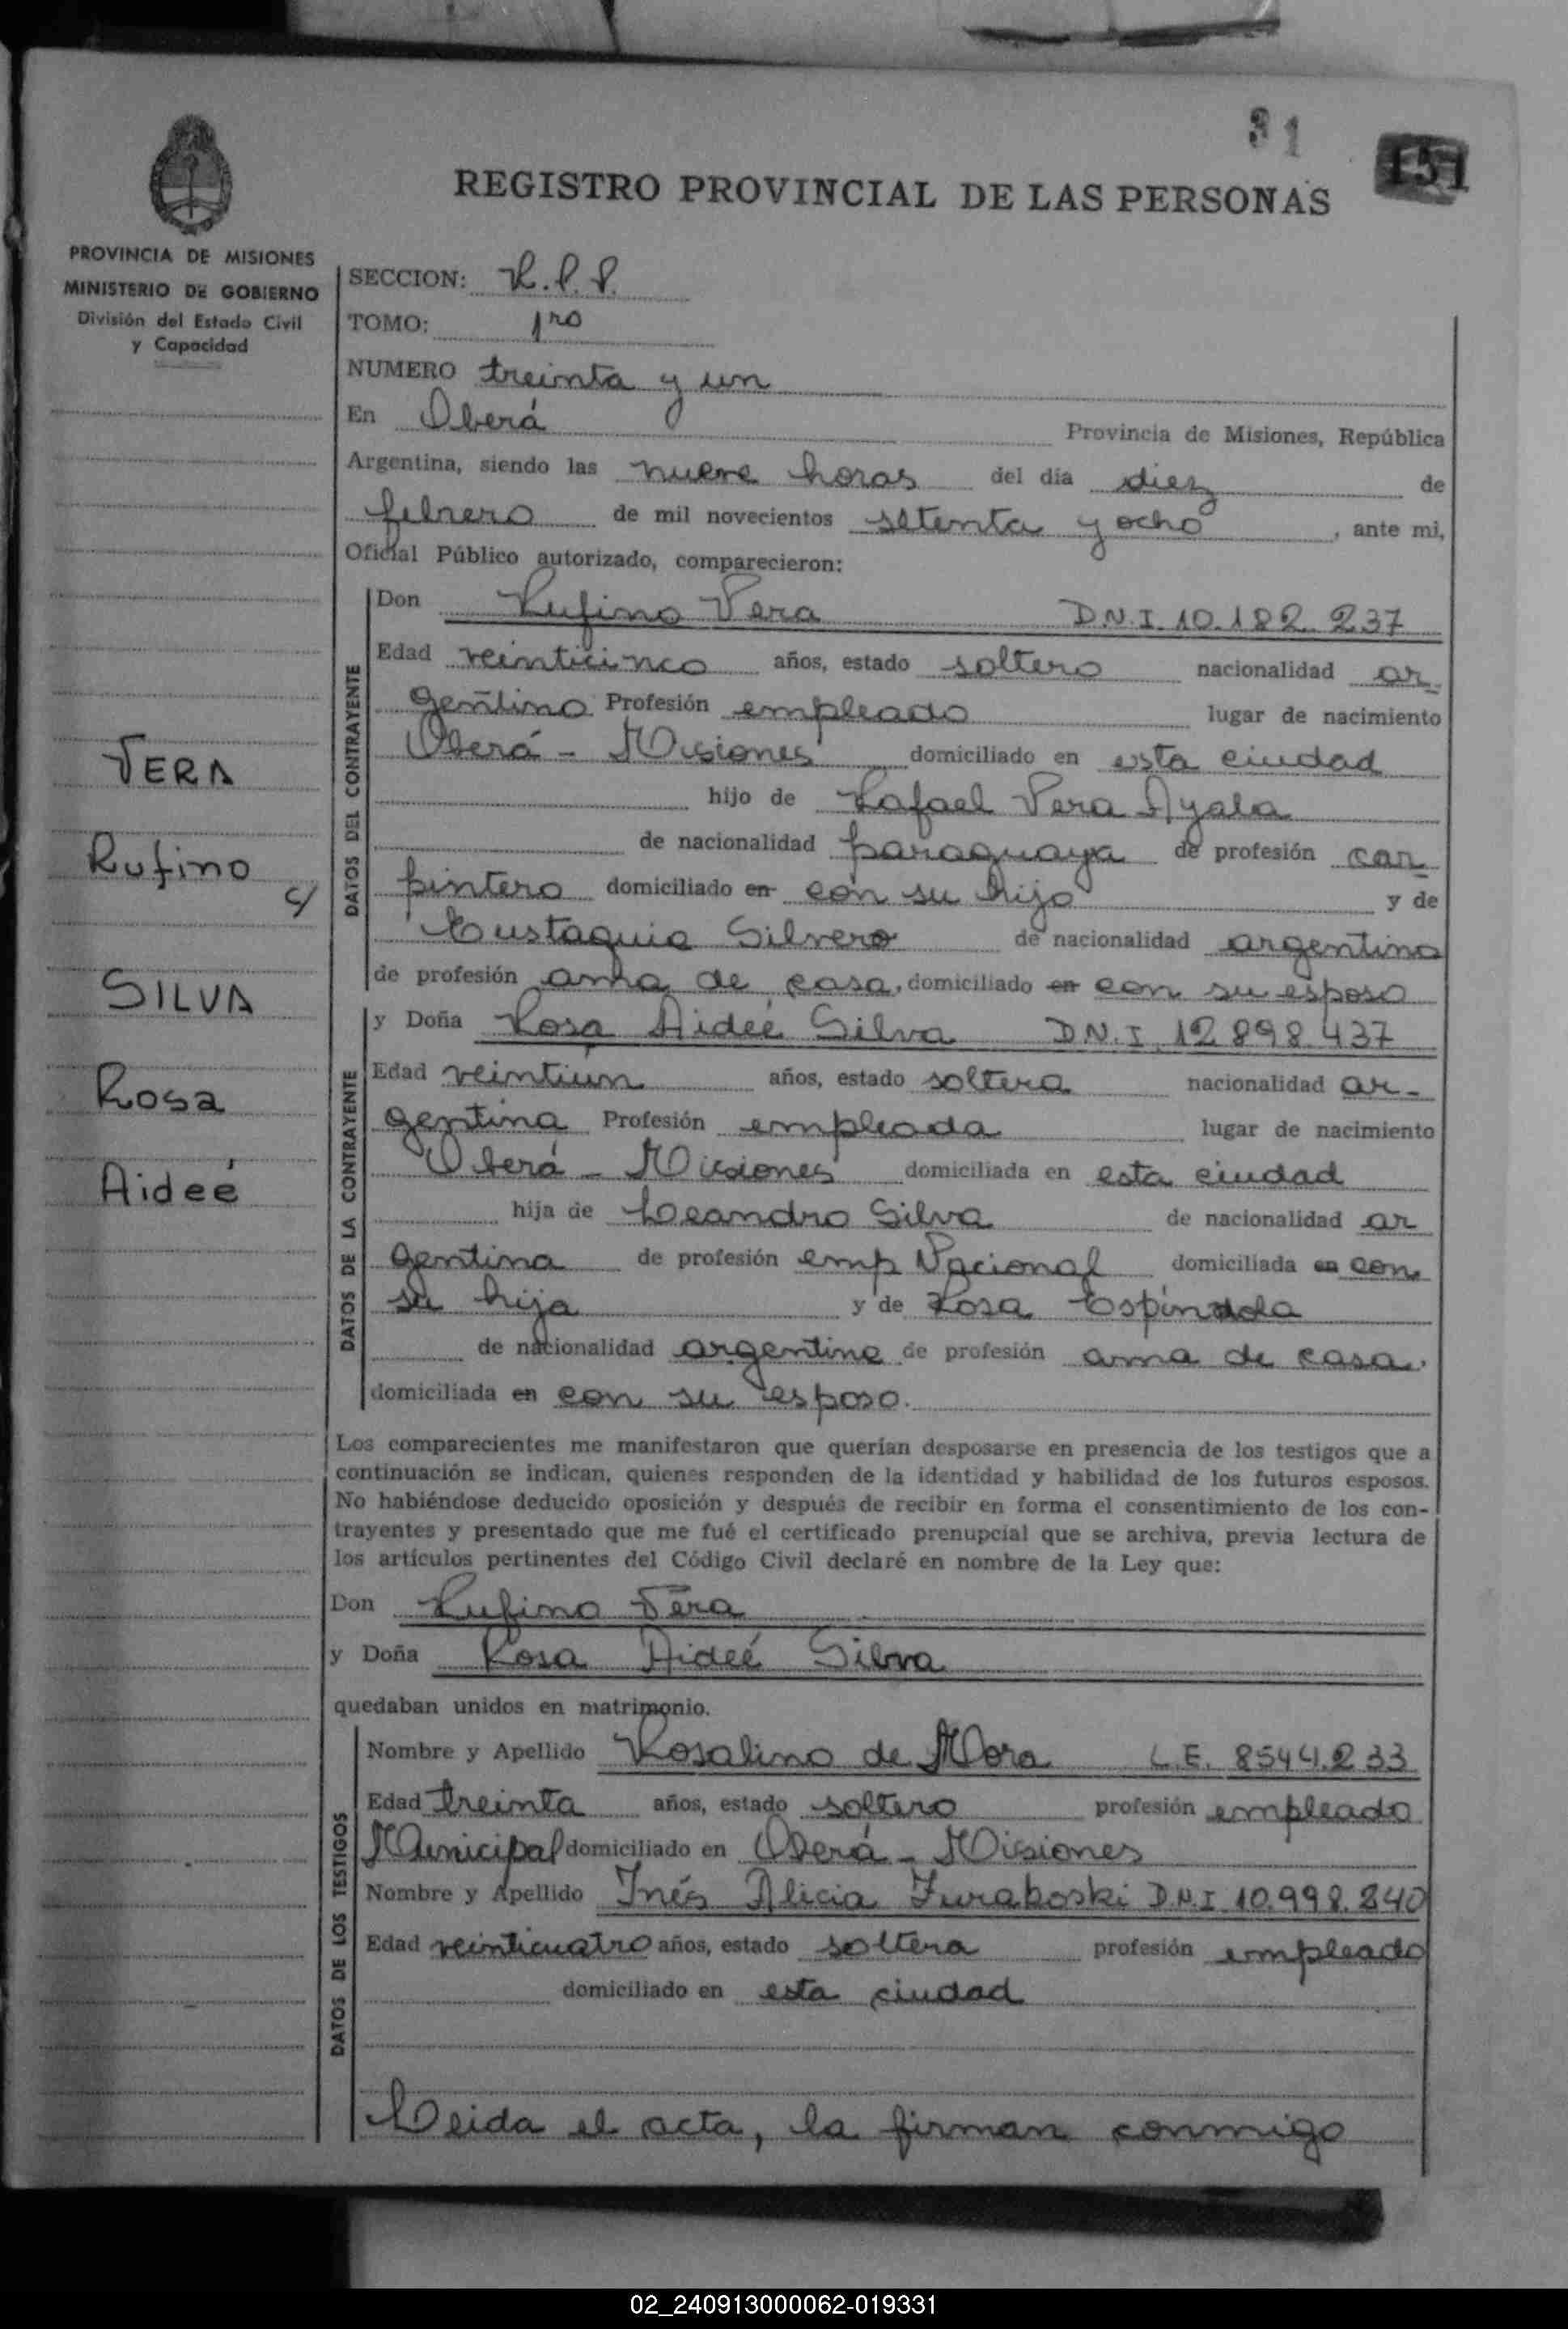 31
151
REGISTRO PROVINCIAL DE LAS PERSONAS
PROVINCIA DE MISIONES
MINISTERIO DE GOBIERNO
División del Estado Civil
y Capacidad
VERA
Rufino
c/
SILVA
Rosa
Aideé
SECCION: R.P.P.
TOMO: 1ro
NUMERO treinta y un
En Oberá Provincia de Misiones, República
Argentina, siendo las nueve horas del día diez de
febrero de mil novecientos setenta y ocho, ante mi,
Oficial Público autorizado, comparecieron:
DATOS DEL CONTRAYENTE
Don Rufino Vera D.N.I. 10.182.237
Edad veinticinco años, estado soltero nacionalidad ar-
gentino Profesión empleado lugar de nacimiento
Oberá - Misiones domiciliado en esta ciudad
hijo de Rafael Vera Ayala
de nacionalidad paraguaya de profesión car
pintero domiciliado en con su hijo y de
Eustaquia Silvero de nacionalidad argentina
de profesión ama de casa, domiciliado en con su esposo
DATOS DE LA CONTRAYENTE
y Doña Rosa Aideé Silva D.N.I. 12.898.437
Edad veintiun años, estado soltera nacionalidad ar-
gentina Profesión empleada lugar de nacimiento
Oberá - Misiones domiciliada en esta ciudad
hija de Leandro Silva de nacionalidad ar
gentina de profesión emp Nacional domiciliada en con
su hija y de Rosa Espíndola
de nacionalidad argentina de profesión ama de casa,
domiciliada en con su esposo.
Los comparecientes me manifestaron que querían desposarse en presencia de los testigos que a
continuación se indican, quienes responden de la identidad y habilidad de los futuros esposos.
No habiéndose deducido oposición y después de recibir en forma el consentimiento de los con-
trayentes y presentado que me fué el certificado prenupcial que se archiva, previa lectura de
los artículos pertinentes del Código Civil declaré en nombre de la Ley que:
Don Rufino Vera
y Doña Rosa Aideé Silva
quedaban unidos en matrimonio.
DATOS DE LOS TESTIGOS
Nombre y Apellido Rosalino de Mora L.E. 8544.233
Edad treinta años, estado soltero profesión empleado
Municipal domiciliado en Oberá - Misiones
Nombre y Apellido Inés Alicia Zurakoski D.N.I 10.998.240
Edad veinticuatro años, estado soltera profesión empleado
domiciliado en esta ciudad
Leida el acta, la firman conmigo
02_240913000062-019331